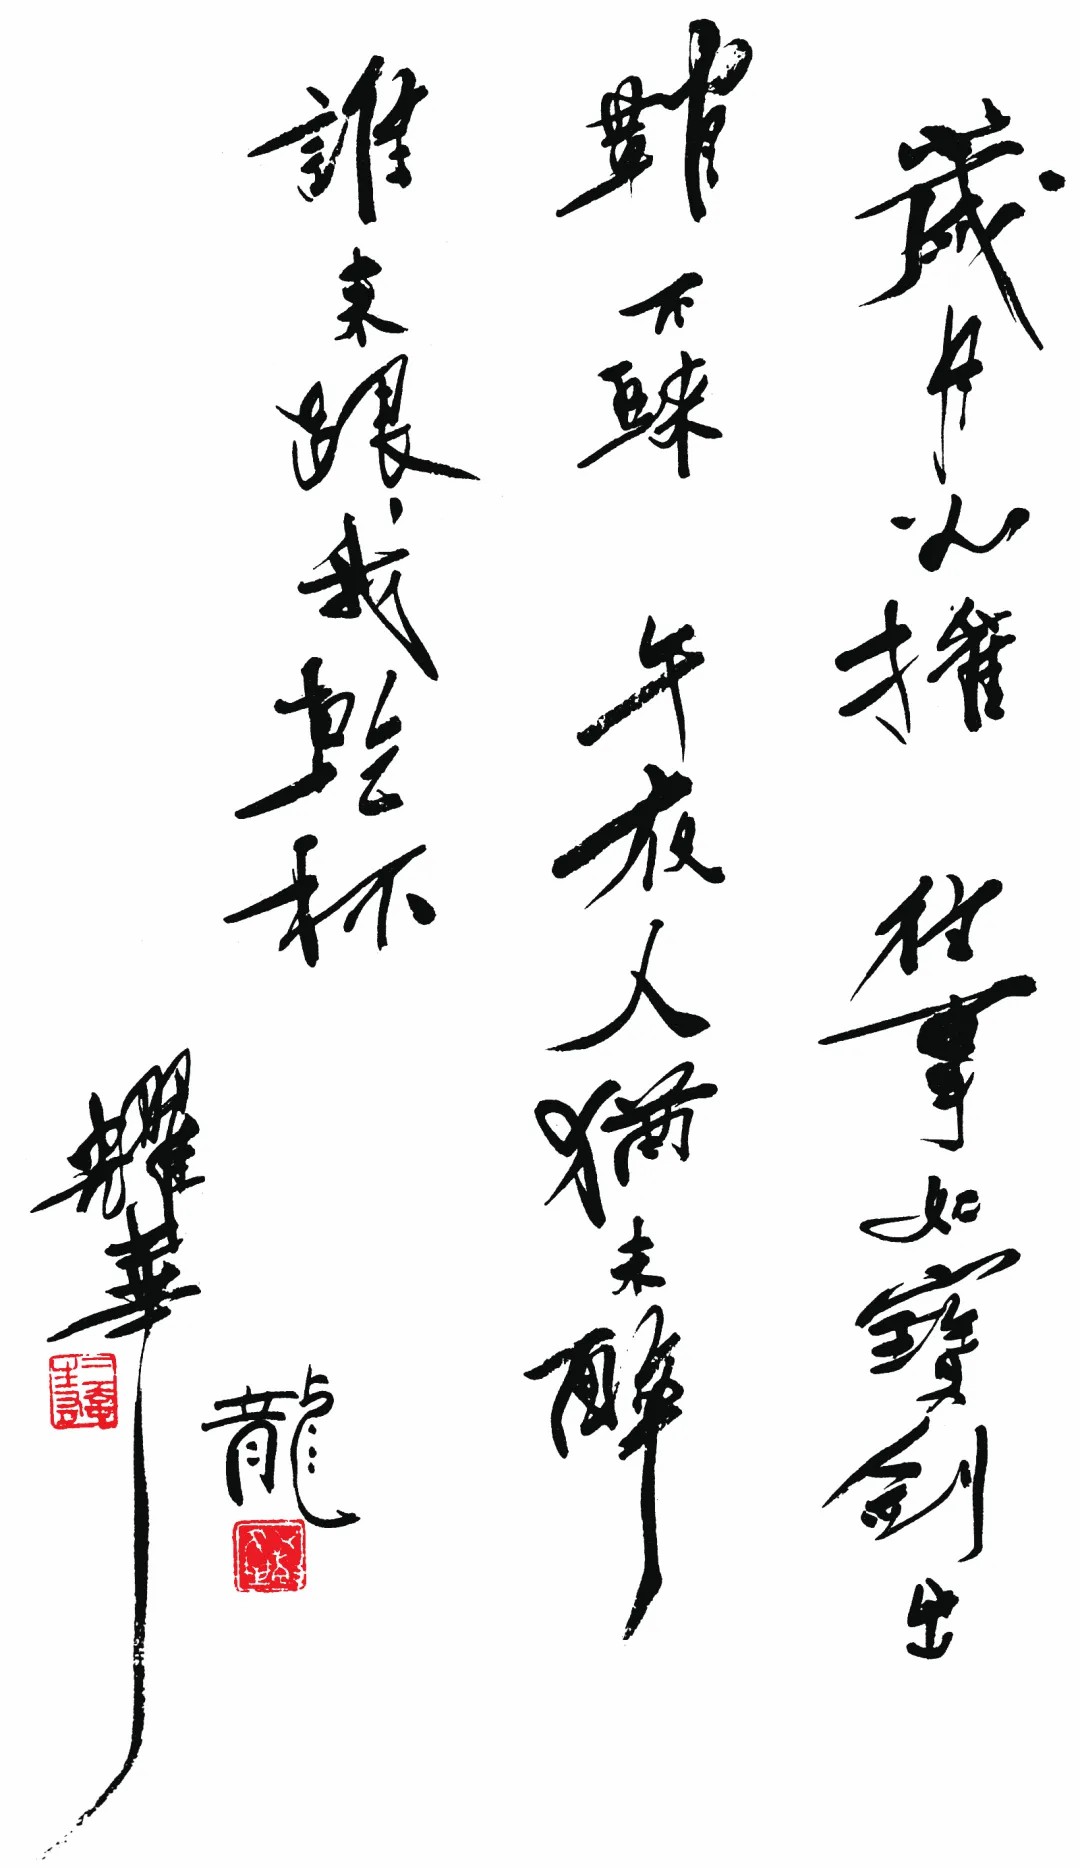 歲月心摧 往事如寶劍出
鞘 午夜人猶未醉
誰來跟我乾杯
龍
耀華